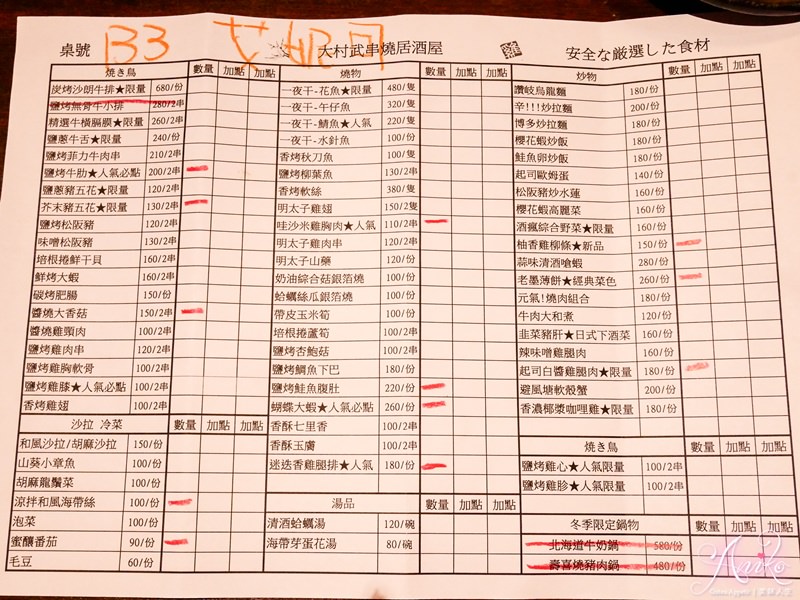 桌號 B3 艾妮可 大村武串燒居酒屋 安全な厳選した食材
燒き鳥 數量 加點 加點
炭烤沙朗牛排★限量 680/份
鹽烤無骨牛小排 280/2串
精選牛橫膈膜★限量 260/2串
鹽蔥牛舌★限量 240/份
鹽烤菲力牛肉串 210/2串
鹽烤牛肋★人氣必點 200/2串
鹽蔥豬五花★限量 120/2串
芥末豬五花★限量 130/2串
鹽烤松阪豬 120/2串
味噌松阪豬 130/2串
培根捲鮮干貝 160/2串
鮮烤大蝦 160/2串
碳烤肥腸 150/份
醬燒大香菇 150/2串
醬燒雞頸肉 100/2串
鹽烤雞肉串 120/2串
鹽烤雞胸軟骨 100/2串
鹽烤雞膝★人氣必點 100/2串
香烤雞翅 100/2串
沙拉 冷菜 數量 加點 加點
和風沙拉/胡麻沙拉 150/份
山葵小章魚 100/份
胡麻龍鬚菜 100/份
涼拌和風海帶絲 100/份
泡菜 100/份
蜜釀番茄 90/份
毛豆 60/份
燒物 數量 加點 加點
一夜干-花魚★限量 480/隻
一夜干-午仔魚 320/隻
一夜干-鯖魚★人氣 220/隻
一夜干-水針魚 100/份
香烤秋刀魚 100/隻
鹽烤柳葉魚 130/2串
香烤軟絲 380/隻
明太子雞翅 150/2隻
哇沙米雞胸肉★人氣 110/2串
明太子雞肉串 120/2串
明太子山藥 120/份
奶油綜合菇銀箔燒 100/份
蛤蠣絲瓜銀箔燒 100/份
帶皮玉米筍 100/份
培根捲蘆筍 100/2串
鹽烤杏鮑菇 100/2串
鹽烤鯛魚下巴 180/份
鹽烤鮭魚腹肚 220/份
蝴蝶大蝦★人氣必點 260/份
香酥七里香 100/2串
香酥玉膚 100/2串
迷迭香雞腿排★人氣 180/份
湯品 數量 加點 加點
清酒蛤蠣湯 120/碗
海帶芽蛋花湯 80/碗
炒物 數量 加點 加點
讚岐烏龍麵 180/份
辛!!!炒拉麵 200/份
博多炒拉麵 180/份
櫻花蝦炒飯 180/份
鮭魚卵炒飯 180/份
起司歐姆蛋 140/份
松阪豬炒水蓮 160/份
櫻花蝦高麗菜 160/份
酒瘋綜合野菜★限量 160/份
柚香雞柳條★新品 150/份
蒜味清酒嗆蝦 280/份
老墨薄餅★經典菜色 260/份
元氣!燒肉組合 180/份
牛肉大和煮 120/份
韭菜豬肝★日式下酒菜 160/份
辣味噌雞腿肉 160/份
起司白醬雞腿肉★限量 180/份
避風塘軟殼蟹 200/份
香濃椰漿咖哩雞★限量 180/份
燒き鳥 數量 加點 加點
鹽烤雞心★人氣限量 100/2串
鹽烤雞胗★人氣限量 100/2串
冬季限定鍋物 數量 加點 加點
北海道牛奶鍋 580/份
壽喜燒豬肉鍋 480/份